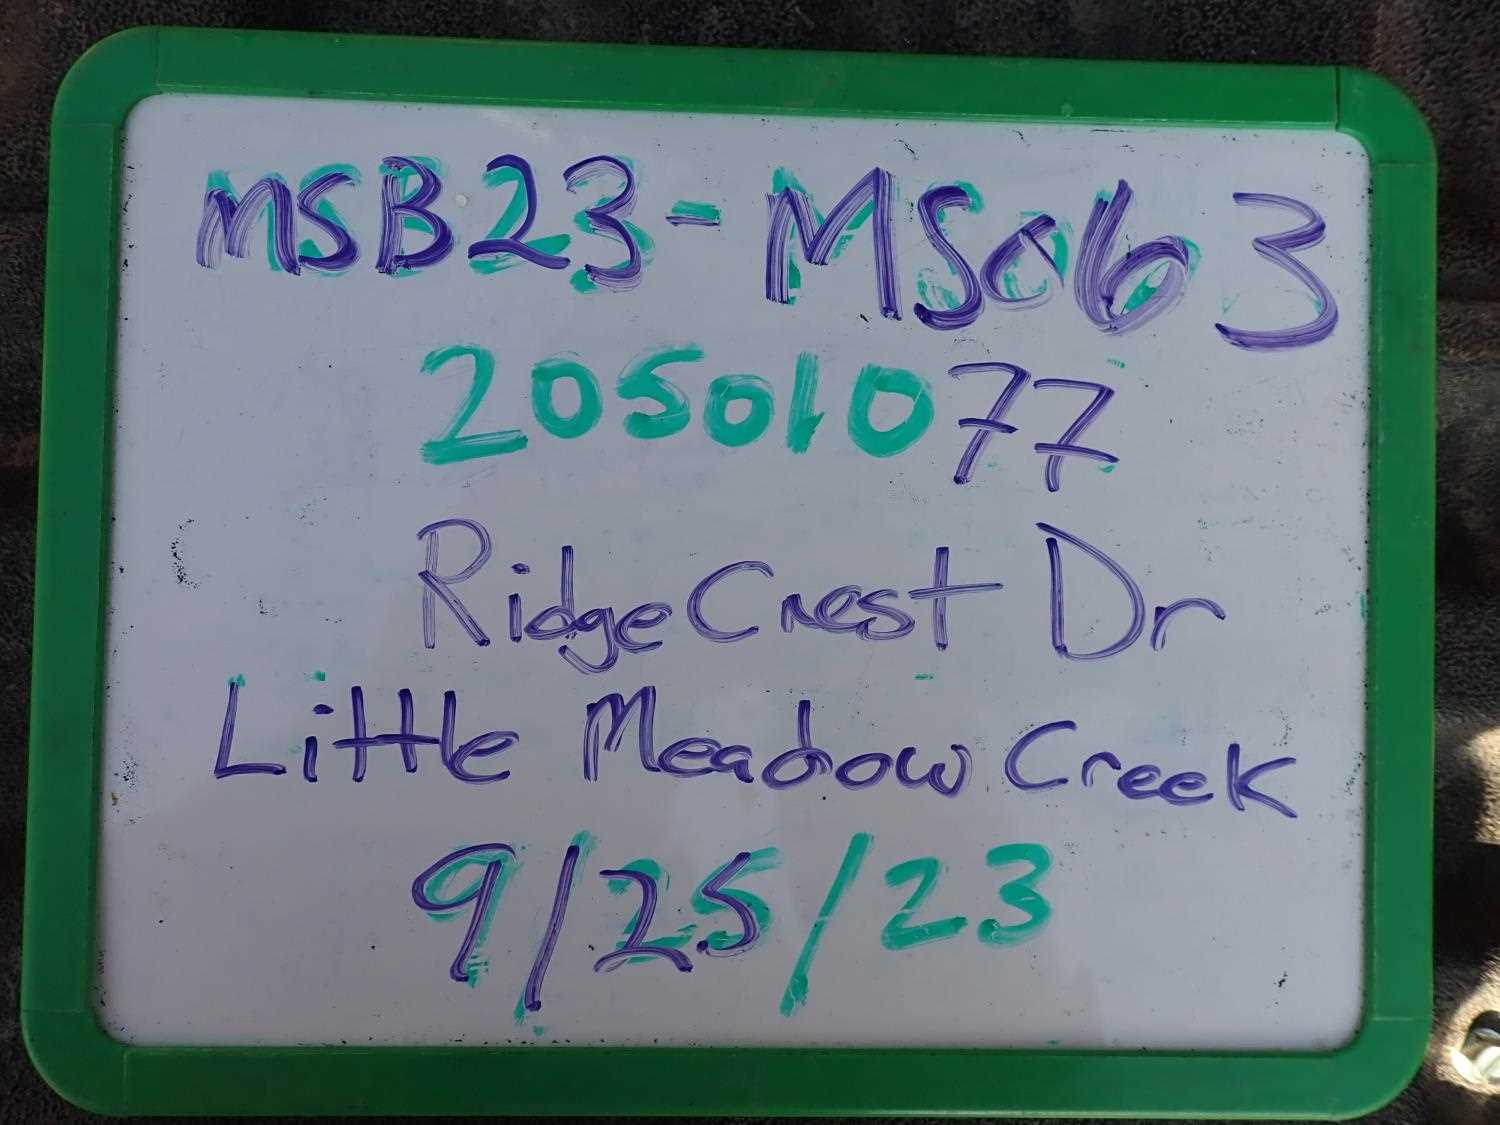 MSB23-MS063
20501077
RidgeCrest Dr
Little Meadow Creek
9/25/23